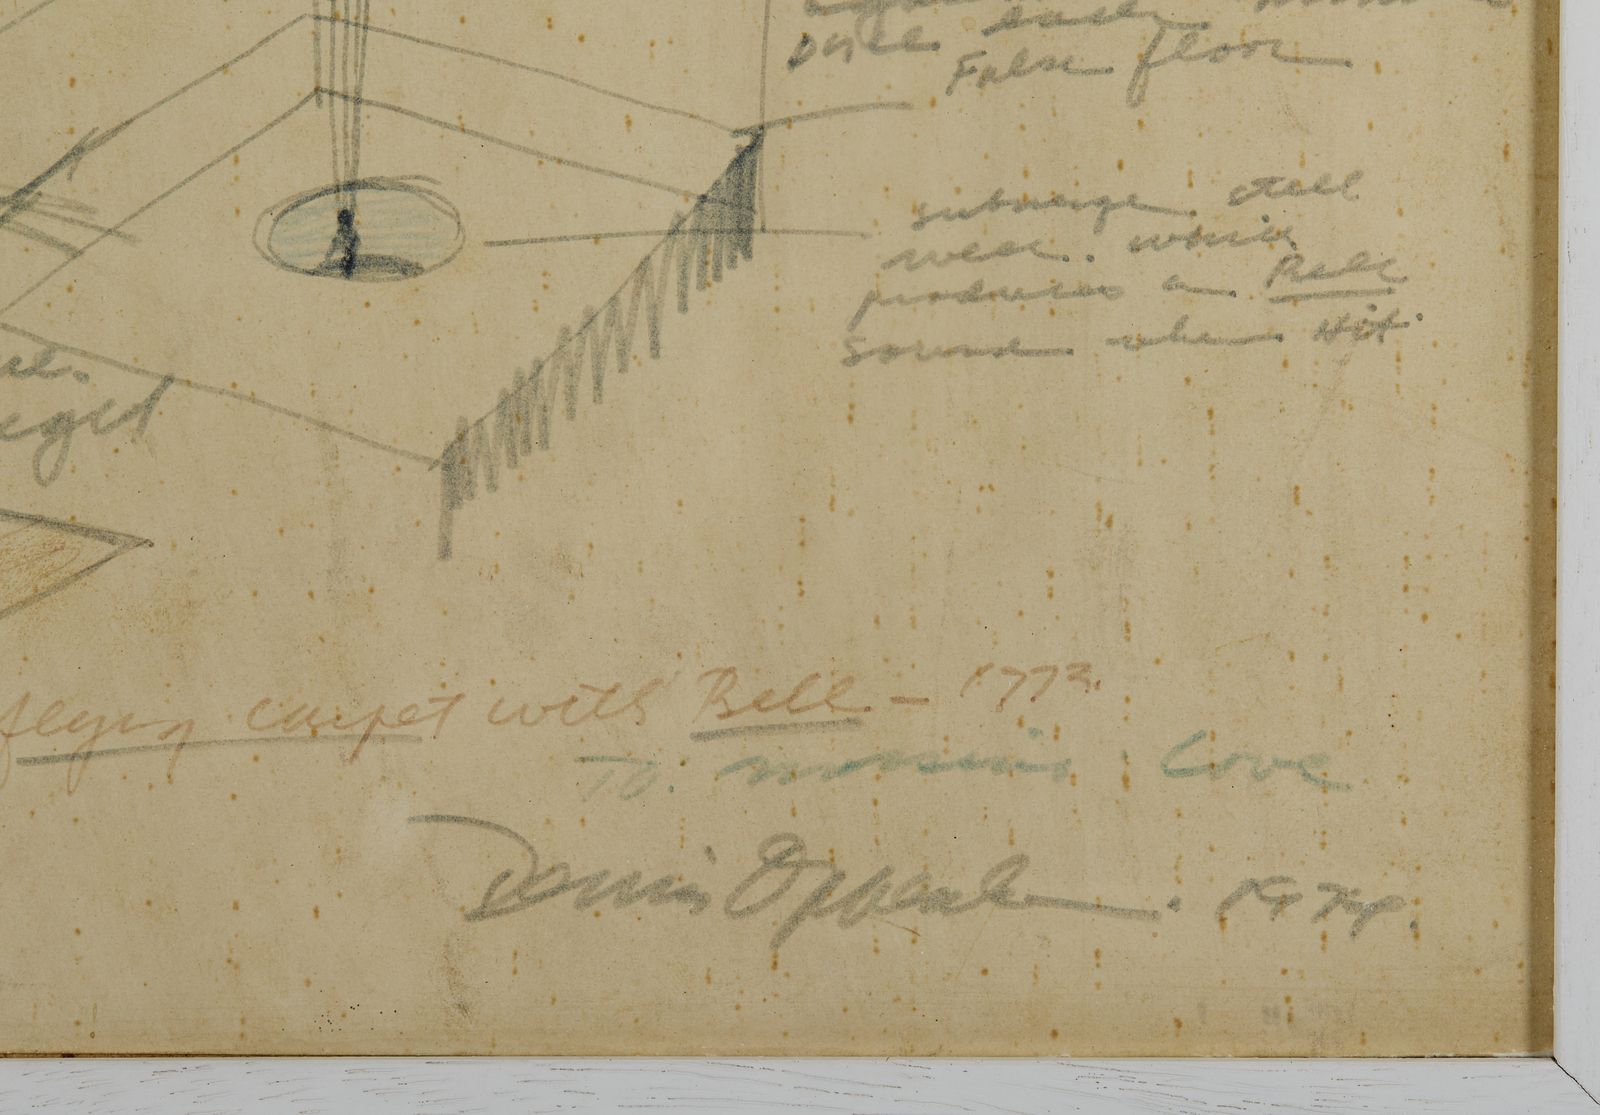 False floor
submerge steel
well. which
produces a Bell
sound when Hit.
flying carpet with Bell. – 1973.
To. Love
Dennis Oppenheim.